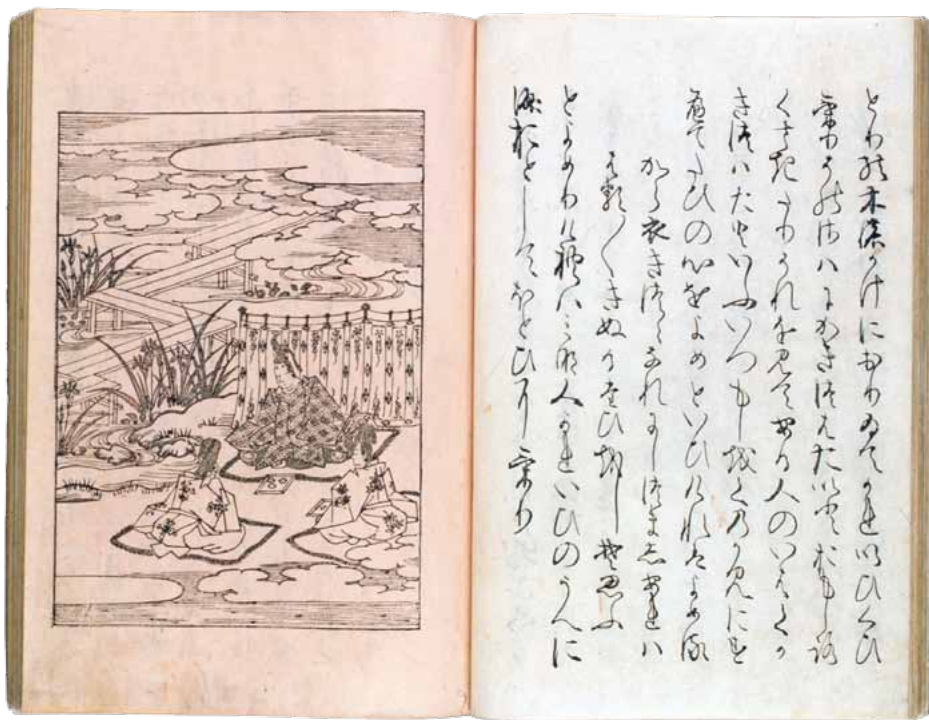 とりの木のかけにおりゐてかれいひくひ
けりそのさハにかきつはたいとおもしろ
くさきたりそれを見てある人のいはくか
きつハたといふいつもしをくのかみにす
へてたひの心をよめといひけれはよめる
から衣きつゝなれにしつましあれハ
はる〱きぬるたひをしそ思ふ
とよめりけれはみな人かれいひのうへに
おとしてほとひにけり